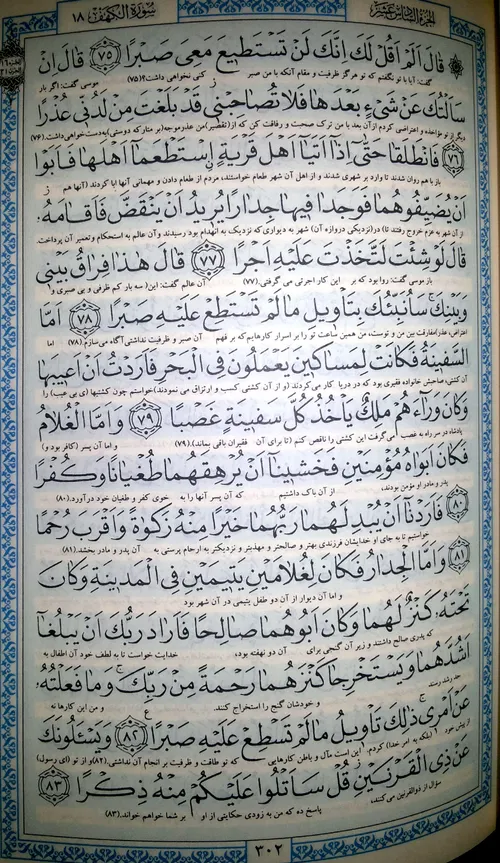 الجزء السادس عشر سورة الكهف ١٨
قَالَ اَلَمْ اَقُلْ لَكَ اِنَّكَ لَنْ تَسْتَطیعَ مَعِیَ صَبْرًا ﴿٧٥﴾ قَالَ اِنْ
گفت: آیا با تو نگفتم که تو هرگز ظرفیت و مقام آنکه با من صبر کنی نخواهی داشت؟(۷۵) موسی گفت: اگر بار
سَاَلْتُكَ عَنْ شَیْءٍ بَعْدَهَا فَلَا تُصَاحِبْنی قَدْ بَلَغْتَ مِنْ لَدُنّی عُذْرًا
دیگر از تو مؤاخذه و اعتراضی کردم از آن بعد با من ترک صحبت و رفاقت کن که از (تقصیر) من عذر موجه (بر متارکه دوستی) به دست خواهی داشت. (۷۶)
﴿٧٦﴾ فَانْطَلَقَا حَتّٰی اِذَا اَتَیَا اَهْلَ قَرْیَةٍ اسْتَطْعَمَا اَهْلَهَا فَاَبَوْا
باز با هم روان شدند تا وارد بر شهری شدند و از اهل آن شهر طعام خواستند، مردم از طعام دادن و مهمانی آنها ابا کردند (آنها هم
اَنْ یُضَیِّفُوهُمَا فَوَجَدَا فیهَا جِدَارًا یُریدُ اَنْ یَنْقَضَّ فَاَقَامَهُ
از آن شهر به عزم خروج رفتند تا) در (نزدیکی دروازه آن) شهر به دیواری که نزدیک به انهدام بود رسیدند و آن عالم به استحکام و تعمیر آن پرداخت.
قَالَ لَوْ شِئْتَ لَتَّخَذْتَ عَلَیْهِ اَجْرًا ﴿٧٧﴾ قَالَ هٰذَا فِرَاقُ بَیْنی
باز موسی گفت: روا بود که بر این کار اجرتی می گرفتی.(۷۷) آن عالم گفت: این (سه بار کم ظرفی و بی صبری و
وَبَیْنِكَ سَاُنَبِّئُكَ بِتَاْویلِ مَا لَمْ تَسْتَطِعْ عَلَیْهِ صَبْرًا ﴿٧٨﴾ اَمَّا
اعتراض، عذر) مفارقت بین من و توست، من همین ساعت تو را بر اسرار کارهایم که بر فهم آن صبر و ظرفیت نداشتی آگاه می سازم.(۷۸) اما
السَّفینَةُ فَكَانَتْ لِمَسَاكینَ یَعْمَلُونَ فِی الْبَحْرِ فَاَرَدْتُ اَنْ اَعیبَهَا
آن کشتی، صاحبش خانواده فقیری بود که در دریا کار می کردند (و از آن کشتی کسب و ارتزاق می نمودند) خواستم چون کشتیها (ی بی عیب) را
وَكَانَ وَرَاءَهُمْ مَلِكٌ یَاْخُذُ كُلَّ سَفینَةٍ غَصْبًا ﴿٧٩﴾ وَاَمَّا الْغُلَامُ
پادشاه در سر راه به غصب می گرفت این کشتی را ناقص کنم (تا برای آن فقیران باقی بماند).(۷۹) و اما آن پسر (کافر بود و)
فَكَانَ اَبَوَاهُ مُؤْمِنَیْنِ فَخَشینَا اَنْ یُرْهِقَهُمَا طُغْیَانًا وَكُفْرًا
پدر و مادر او مؤمن بودند، از آن باک داشتیم که آن پسر آنها را به خوی کفر و طغیان خود درآورد.(۸۰)
﴿٨٠﴾ فَاَرَدْنَا اَنْ یُبْدِلَهُمَا رَبُّهُمَا خَیْرًا مِنْهُ زَكٰوةً وَاَقْرَبَ رُحْمًا
خواستیم تا به جای او خدایشان فرزندی بهتر و صالحتر و مهذبتر و نزدیکتر به ارحام پرستی به آن پدر و مادر بخشد.(۸۱)
﴿٨١﴾ وَاَمَّا الْجِدَارُ فَكَانَ لِغُلَامَیْنِ یَتیمَیْنِ فِی الْمَدینَةِ وَكَانَ
و اما آن دیوار از آن دو طفل یتیمی در آن شهر بود
تَحْتَهُ كَنْزٌ لَهُمَا وَكَانَ اَبُوهُمَا صَالِحًا فَاَرَادَ رَبُّكَ اَنْ یَبْلُغَا
که پدری صالح داشتند و زیر آن گنجی برای آن دو نهفته بود، خدایت خواست تا به لطف خود آن اطفال به
اَشُدَّهُمَا وَیَسْتَخْرِجَا كَنْزَهُمَا رَحْمَةً مِنْ رَبِّكَ وَمَا فَعَلْتُهُ
حد رشد رسند و خودشان گنج را استخراج کنند. و من این کارها نه
عَنْ اَمْری ذٰلِكَ تَاْویلُ مَا لَمْ تَسْطِعْ عَلَیْهِ صَبْرًا ﴿٨٢﴾ وَیَسْئَلُونَكَ
از پیش خود (بلکه به امر خدا) کردم، این است مآل و باطن کارهایی که تو طاقت و ظرفیت بر انجام آن نداشتی.(۸۲) و از تو (ای رسول)
عَنْ ذِی الْقَرْنَیْنِ قُلْ سَاَتْلُوا عَلَیْكُمْ مِنْهُ ذِكْرًا ﴿٨٣﴾
سؤال از ذوالقرنین می کنند، پاسخ ده که من به زودی حکایتی از او بر شما خواهم خواند.(۸۳)
٣٠٢